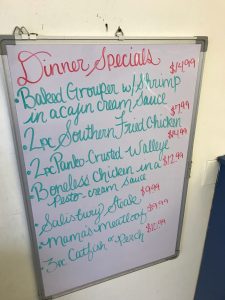 Dinner Specials
• Baked Grouper w/ Shrimp $14.99
in a cajin cream sauce
• 2pc Southern Fried Chicken $7.99
• 2pc Panko-Crusted Walleye $14.99
• Boneless Chicken in a $12.99
Pesto-cream sauce
• Salisbury Steak $9.99
• Mama's Meatloaf $9.99
3pc Catfish or Perch $10.99